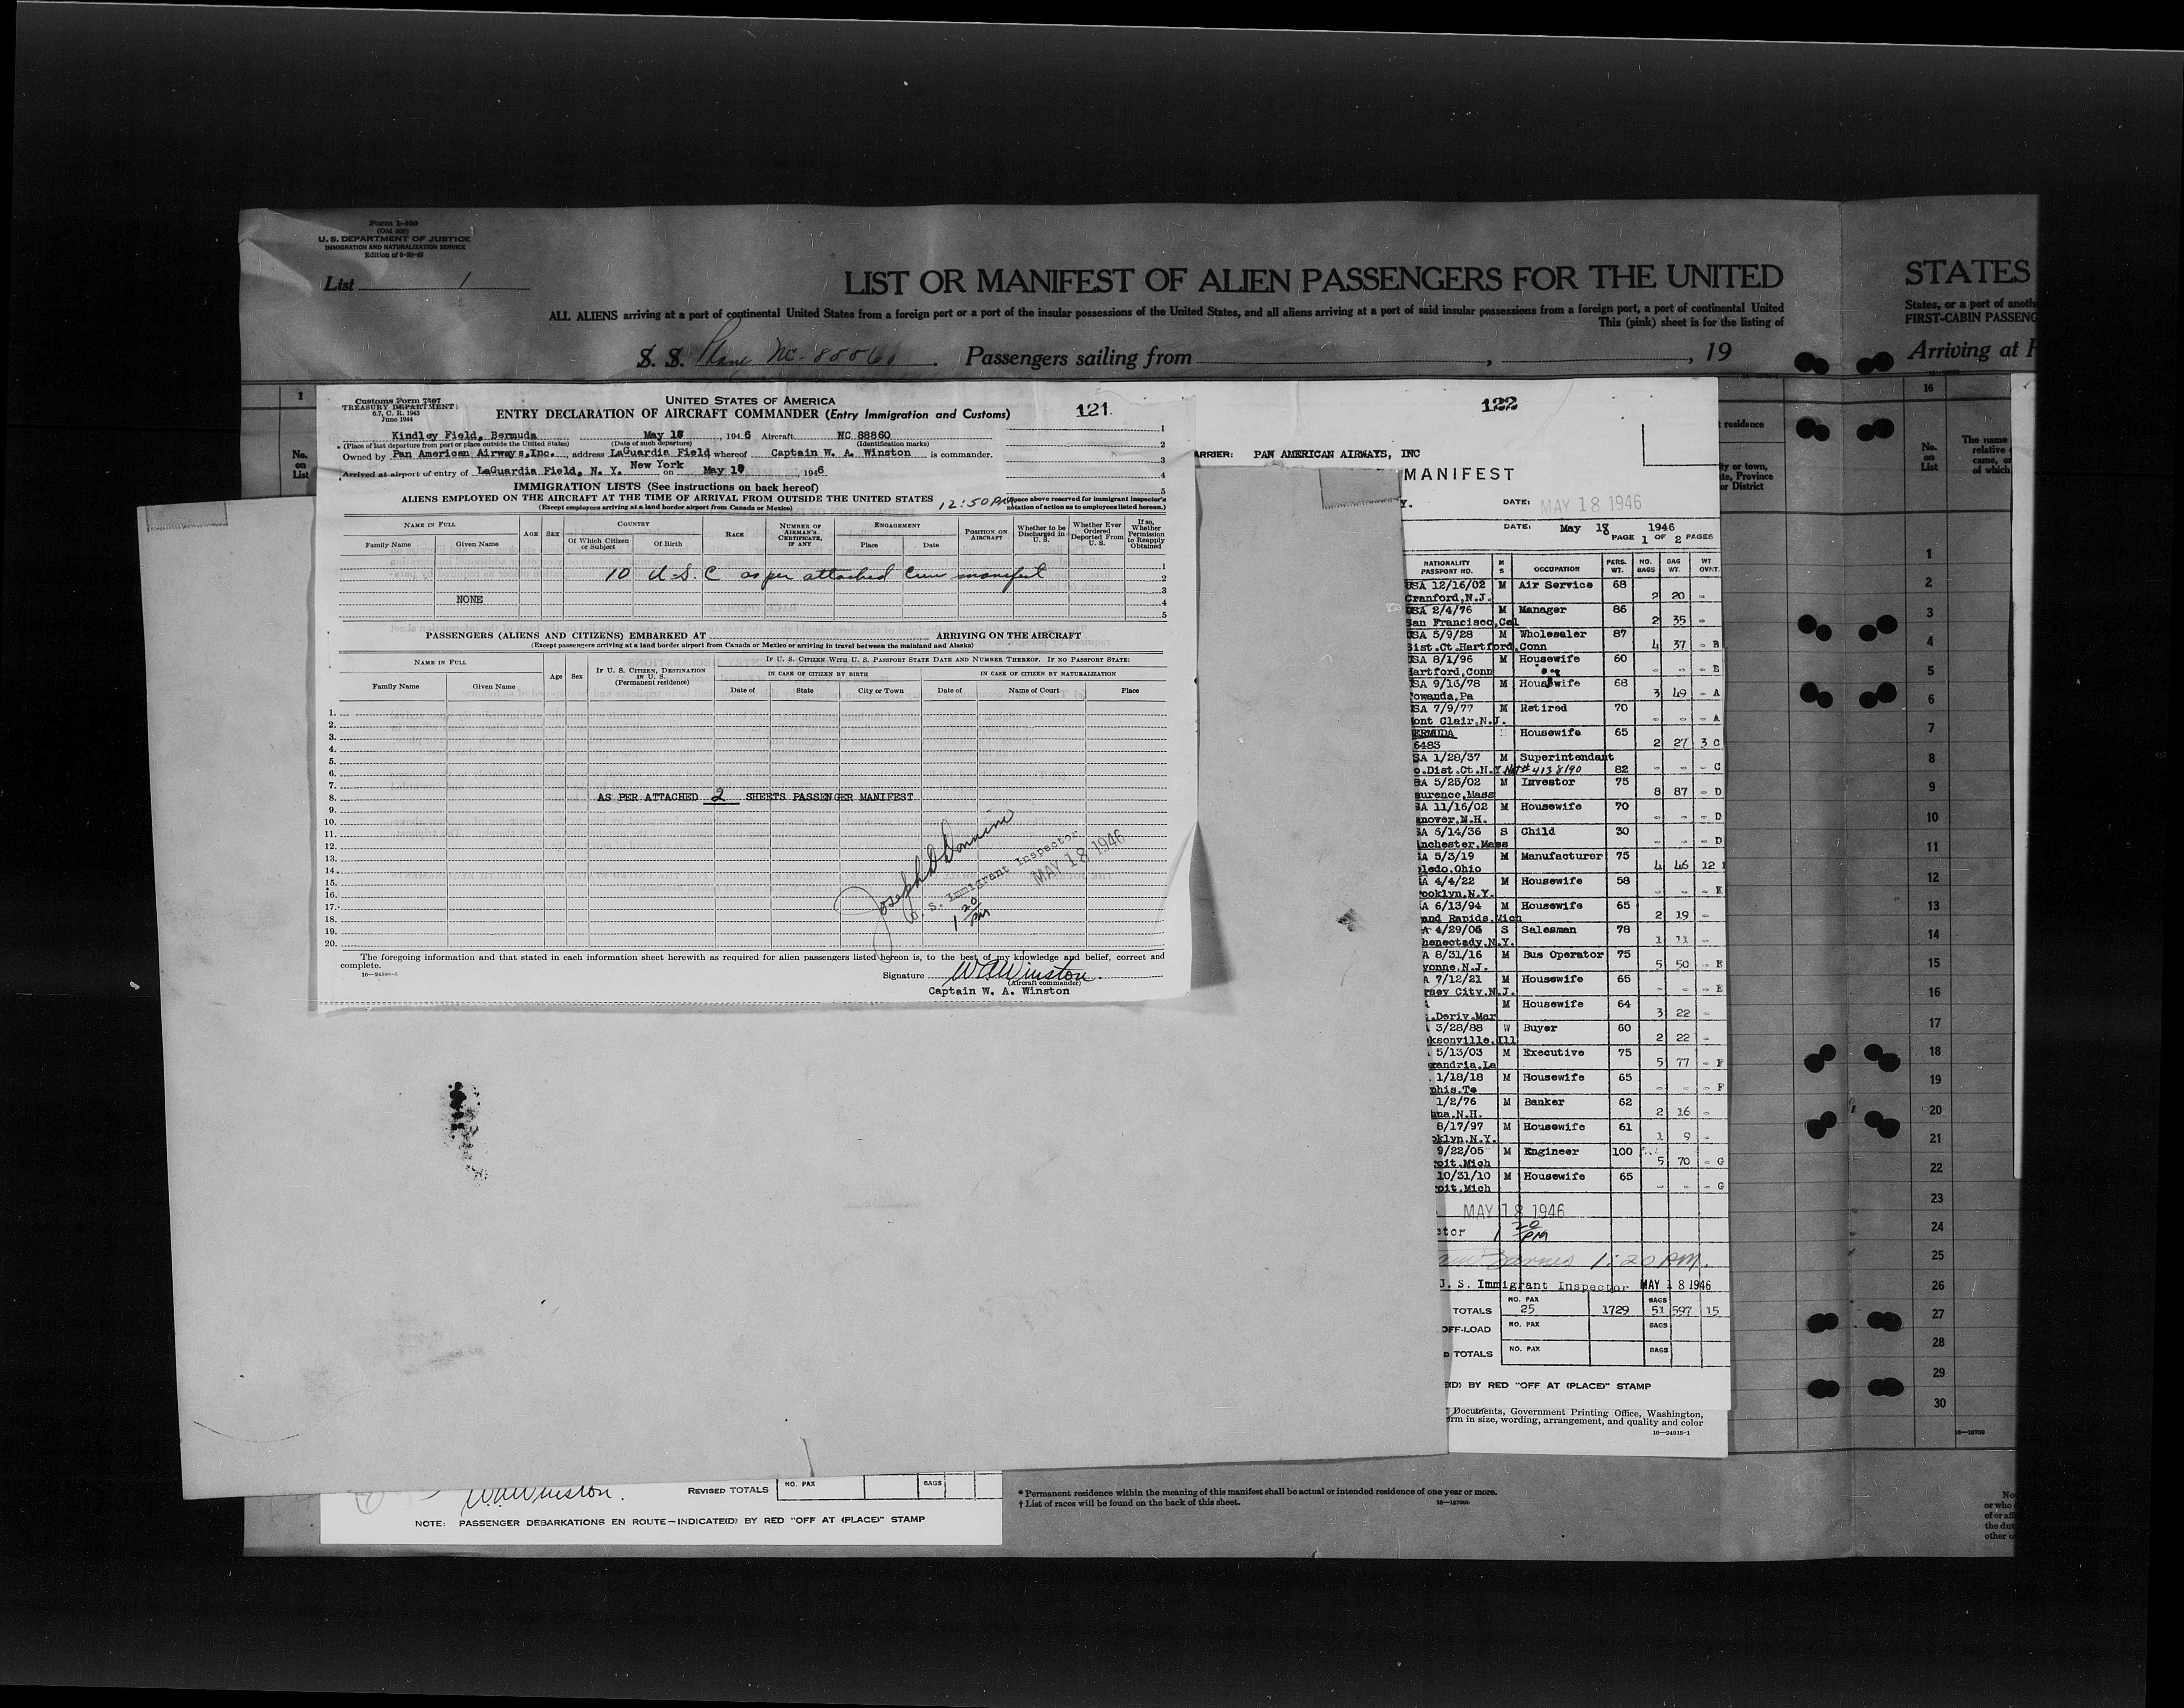 Form I-400
(Old 500)
U. S. DEPARTMENT OF JUSTICE
IMMIGRATION AND NATURALIZATION SERVICE
List 1
LIST OR MANIFEST OF ALIEN PASSENGERS FOR THE UNITED
STATES
ALL ALIENS arriving at a port of continental United States from a foreign port or a port of the insular possessions of the United States, and all aliens arriving at a port of said insular possessions from a foreign port, a port of continental United
States, or a port of anoth
This (pink) sheet is for the listing of
FIRST-CABIN PASSENG
S. S. Plane NC. 88860. Passengers sailing from , , 19
Arriving at
1
No.
on
List
Customs Form 7507
TREASURY DEPARTMENT
6.7, C. R. 1943
June 1944
UNITED STATES OF AMERICA
ENTRY DECLARATION OF AIRCRAFT COMMANDER (Entry Immigration and Customs)
121
Kindley Field, Bermuda May 18, 1946 Aircraft NC 88860
(Place of last departure from port or place outside the United States) (Date of such departure) (Identification marks)
Owned by Pan American Airways, Inc., address LaGuardia Field whereof Captain W. A. Winston is commander.
New York
Arrived at airport of entry of LaGuardia Field, N. Y. on May 18, 1946
1
2
3
4
5
IMMIGRATION LISTS (See instructions on back hereof)
ALIENS EMPLOYED ON THE AIRCRAFT AT THE TIME OF ARRIVAL FROM OUTSIDE THE UNITED STATES
(Except employees arriving at a land border airport from Canada or Mexico)
12:50 PM
(Space above reserved for immigrant inspector's
notation of action as to employees listed hereon.)
NAME IN FULL
Family Name
Given Name
AGE
SEX
COUNTRY
Of Which Citizen
or Subject
Of Birth
RACE
NUMBER OF
AIRMAN'S
CERTIFICATE,
IF ANY
ENGAGEMENT
Place
Date
POSITION ON
AIRCRAFT
Whether to be
Discharged in
U. S.
Whether Ever
Ordered
Deported From
U. S.
If so,
Whether
Permission
to Reapply
Obtained
10 U.S.C as per attached Crew manifest
NONE
1
2
3
4
5
PASSENGERS (ALIENS AND CITIZENS) EMBARKED AT ARRIVING ON THE AIRCRAFT
(Except passengers arriving at a land border airport from Canada or Mexico or arriving in travel between the mainland and Alaska)
NAME IN FULL
Family Name
Given Name
Age
Sex
IF U. S. CITIZEN, DESTINATION
IN U. S.
(Permanent residence)
IF U. S. CITIZEN WITH U. S. PASSPORT STATE DATE AND NUMBER THEREOF. IF NO PASSPORT STATE:
IN CASE OF CITIZEN BY BIRTH
IN CASE OF CITIZEN BY NATURALIZATION
Date of
State
City or Town
Date of
Name of Court
Place
1.
2.
3.
4.
5.
6.
7.
8. AS PER ATTACHED 2 SHEETS PASSENGER MANIFEST
9.
10.
11.
12.
13.
14.
15.
16.
17.
18.
19.
20.
U. S. Immigrant Inspector
MAY 18 1946
1 20 PM
The foregoing information and that stated in each information sheet herewith as required for alien passengers listed hereon is, to the best of my knowledge and belief, correct and
complete.
Signature W A Winston
(Aircraft commander)
Captain W. A. Winston
122
ARRIER: PAN AMERICAN AIRWAYS, INC
MANIFEST
Y.
DATE: MAY 18 1946
DATE: May 18 1946
PAGE 1 OF 2 PAGES
NATIONALITY
PASSPORT NO.
M
S
OCCUPATION
PERS.
WT.
NO.
BAGS
BAG
WT.
WT
OVNT.
USA 12/16/02 M Air Service 68
Cranford,N.J. 2 20 -
USA 2/4/76 M Manager 86
San Francisco,Cal 2 35 -
USA 5/9/28 M Wholesaler 87
Dist.Ct.Hartford,Conn 4 37 - B
USA 8/1/96 M Housewife 60
Hartford,Conn - - - B
SA 9/16/78 M Housewife 68
owanda,Pa 3 49 - A
SA 7/9/77 M Retired 70
ont Clair,N.J. - - - A
ERMUDA Housewife 65
6483 2 27 3 C
SA 1/28/37 M Superintendant
o.Dist.Ct.N.Y. Nat# 4138190 82 - - - C
SA 5/25/02 M Investor 75
aurence,Mass 8 87 - D
SA 11/16/02 M Housewife 70
anover,N.H. - - - D
SA 5/14/36 S Child 30
anchester,Mass - - - D
A 5/3/19 M Manufacturer 75
oledo,Ohio 4 46 12
A 4/4/22 M Housewife 58
ooklyn,N.Y. - - - E
A 6/13/94 M Housewife 65
and Rapids,Mich 2 19 -
A 4/29/06 S Salesman 78
henectady,N.Y. 1 11 -
A 8/31/16 M Bus Operator 75
yonne,N.J. 5 50 - E
A 7/12/21 M Housewife 65
rsey City,N.J. - - - E
M Housewife 64
.Deriv.Mar 3 22 -
3/28/88 W Buyer 60
ksonville,Ill 2 22 -
5/13/03 M Executive 75
xandria,La 5 77 - F
1/18/18 M Housewife 65
phis,Te - - - F
1/2/76 M Banker 62
hua,N.H. 2 16 -
8/17/97 M Housewife 61
oklyn,N.Y. 1 9 -
9/22/05 M Engineer 100
roit,Mich 5 70 - G
10/31/10 M Housewife 65
roit,Mich - - - G
MAY 18 1946
ctor 1 20 PM
Barnes 1:20 PM.
U. S. Immigrant Inspector MAY 18 1946
TOTALS NO. PAX 25 1729 BAGS 51 597 15
OFF-LOAD NO. PAX BAGS
D TOTALS NO. PAX BAGS
E(D) BY RED "OFF AT (PLACE)" STAMP
Documents, Government Printing Office, Washington,
orm in size, wording, arrangement, and quality and color
16—24915-1
residence
ity or town,
te, Province
or District
16
No.
on
List
The name
relative
came, or
of which
1
2
3
4
5
6
7
8
9
10
11
12
13
14
15
16
17
18
19
20
21
22
23
24
25
26
27
28
29
30
W.A.Winston.
REVISED TOTALS NO. PAX BAGS
NOTE: PASSENGER DEBARKATIONS EN ROUTE—INDICATE(D) BY RED "OFF AT (PLACE)" STAMP
* Permanent residence within the meaning of this manifest shall be actual or intended residence of one year or more.
† List of races will be found on the back of this sheet.
No
or who
of or aff
the dut
other o